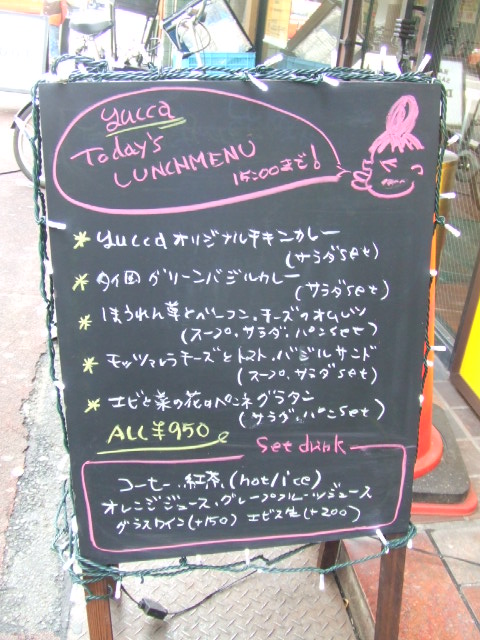 yucca
Today's
LUNCHMENU
15:00まで!
* yuccaオリジナルチキンカレー
(サラダset)
* タイ国グリーンバジルカレー
(サラダset)
* ほうれん草とベーコン、チーズのオムレツ
(スープ、サラダ、パンset)
* モッツァレラチーズとトマト、バジルサンド
(スープ、サラダset)
* エビと菜の花のペンネグラタン
(サラダ、パンset)
ALL ¥950
set drink
コーヒー、紅茶(hot/ice)
オレンジジュース、グレープフルーツジュース
グラスワイン(+150) エビス生(+200)